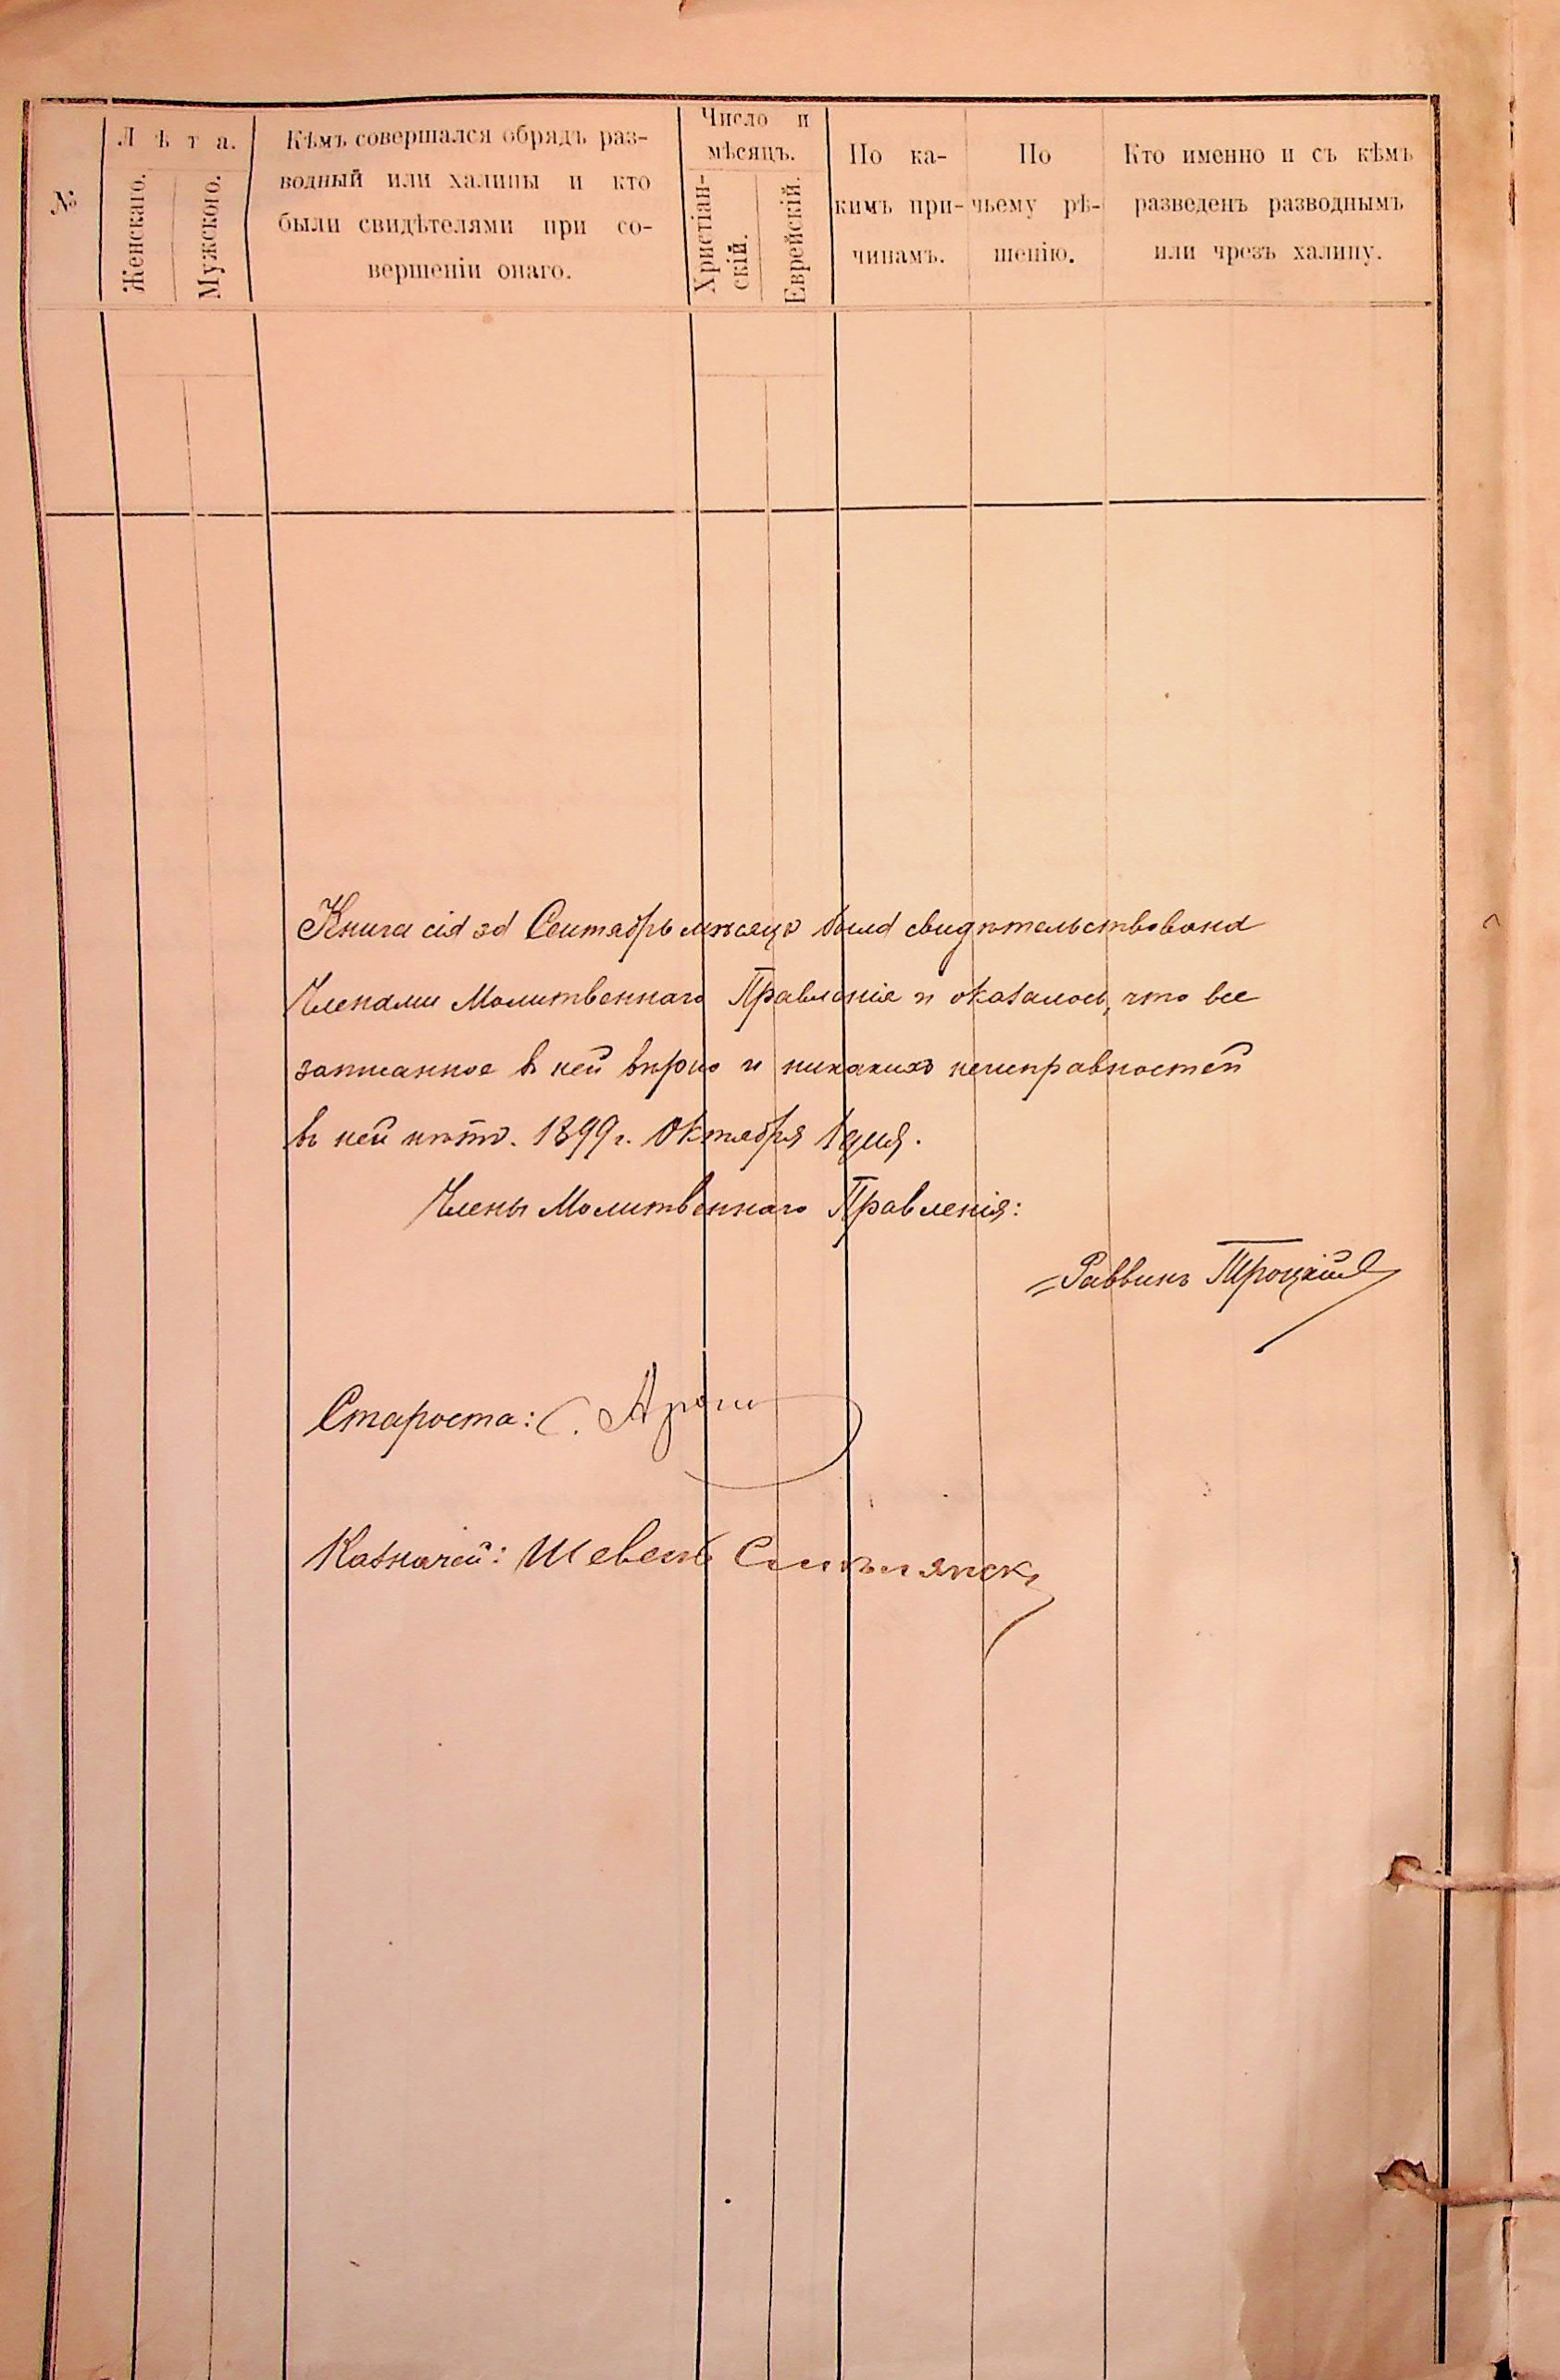 №
Лѣта.
Женскаго.
Мужского.
Кѣмъ совершался обрядъ раз-
водный или халицы и кто
были свидѣтелями при со-
вершеніи онаго.
Число и
мѣсяцъ.
Христіан-
скій.
Еврейскій.
По ка-
кимъ при-
чинамъ.
По
чьему рѣ-
шенію.
Кто именно и съ кѣмъ
разведенъ разводнымъ
или чрезъ халицу.
Книга сія за Сентябрь мѣсяцъ была свидѣтельствована
Членами Молитвеннаго Правленія и оказалось, что все
записанное въ ней вѣрно и никакихъ неисправностей
въ ней нѣтъ. 1899 г. Октября 1 дня.
Члены Молитвеннаго Правленія:
Раввинъ Троцкій
Староста: С.
Казначей: